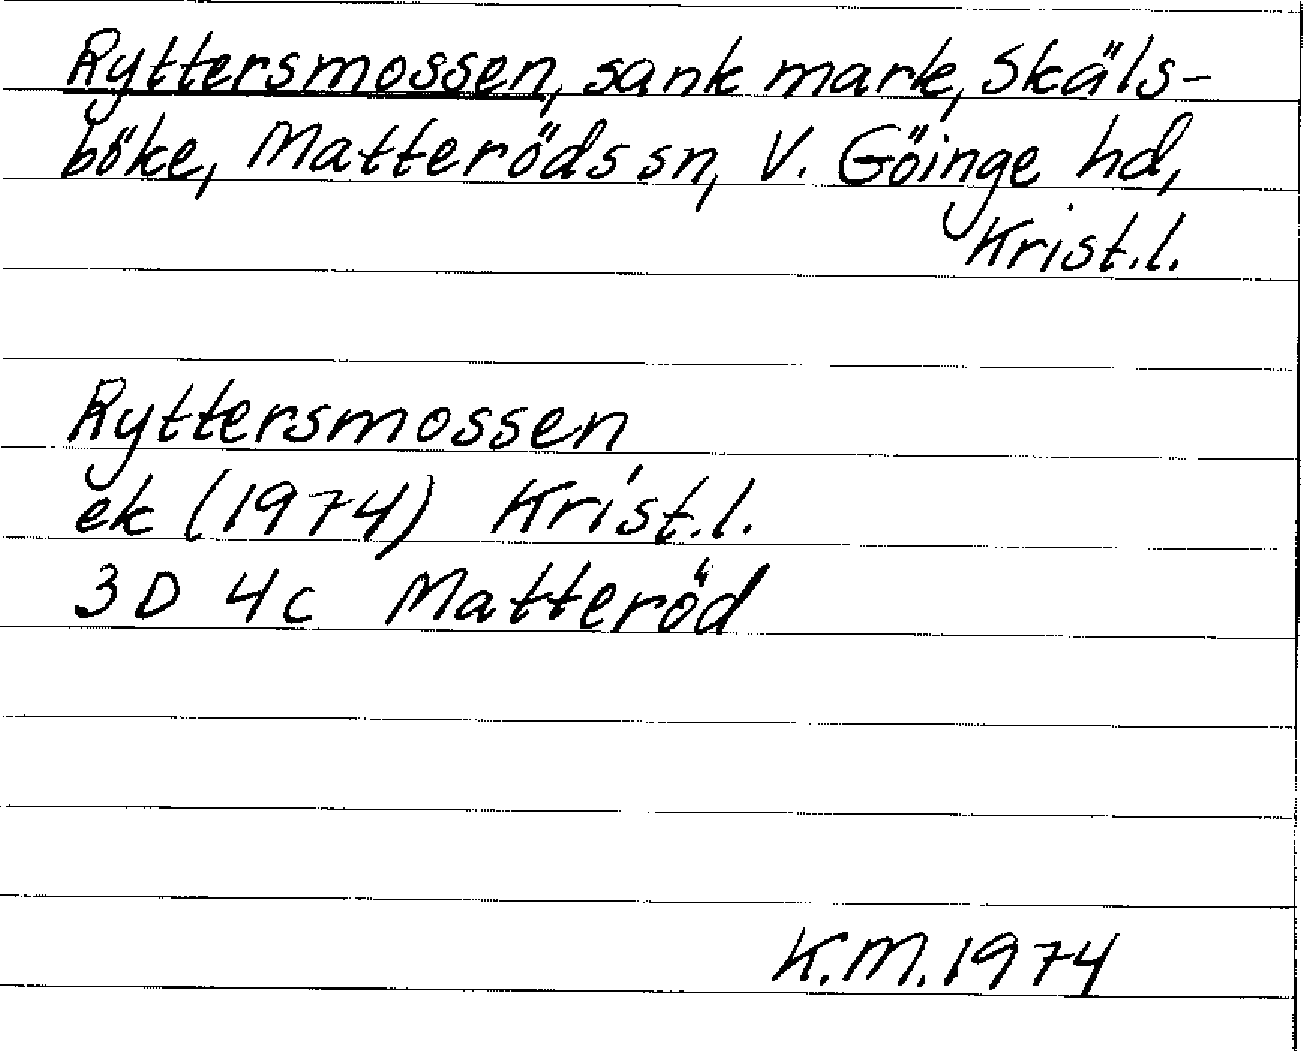 Ryttersmossen, sank mark, Skäls-
böke, Matteröds sn, V. Göinge hd,
Krist.l.
Ryttersmossen
ek (1974) Krist.l.
3D 4c Matteröd
K.M. 1974